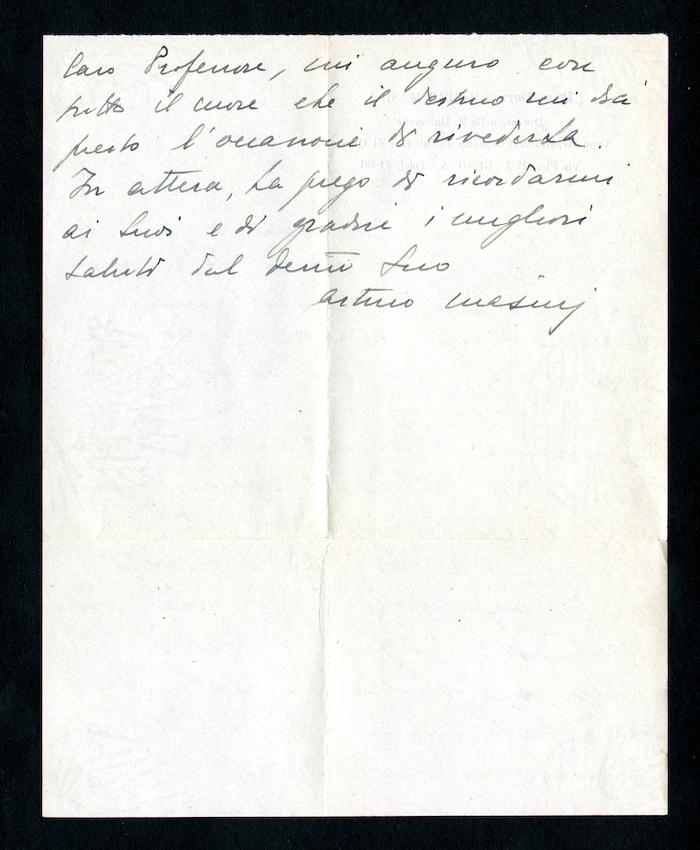 Caro Professore, mi auguro con
tutto il cuore che il destino mi dia
presto l'occasione di rivederLa
In attesa, La prego di ricordarmi
ai Suoi e di gradire i migliori
saluti dal Suo
Arturo Masinj